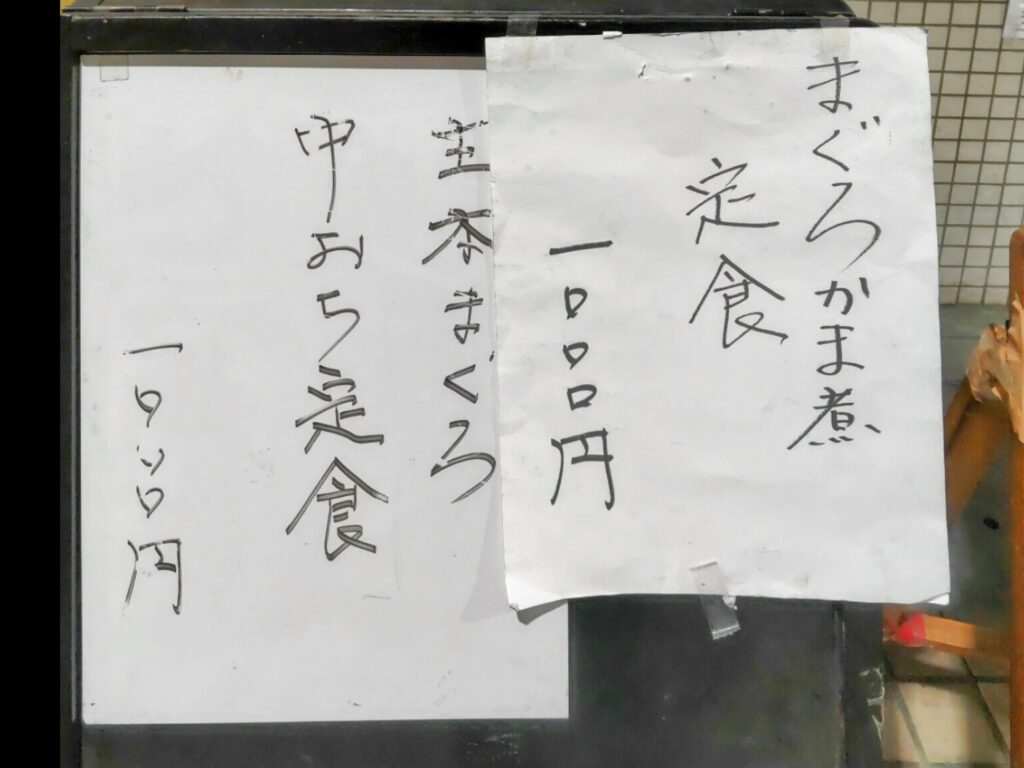 まぐろかま煮
定食
一〇〇〇円
生本まぐろ
中おち定食
一〇〇〇円